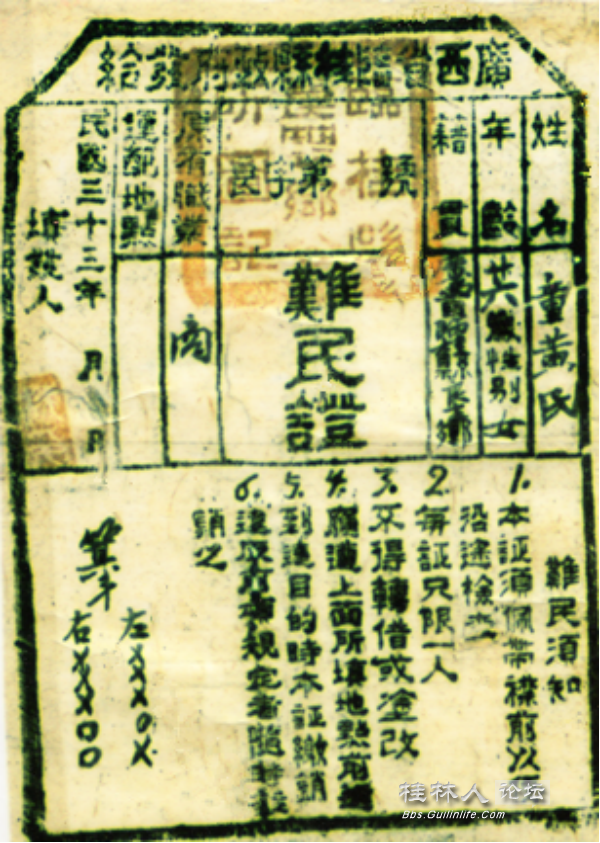 廣西省臨桂縣政府發給
姓名 童黃氏
年齡 廿六歲 性別 女
籍貫
字第 號
難民證
原有職業 商
運配地點
民國三十三年 月 日
填發人
難民須知
1.本証須佩帶襟前以
沿途檢查
2.每証只限一人
3.不得轉借或塗改
4.應遵上面所填地點前
5.到達目的時本証繳銷
6.違反前 規定者隨時
銷之
箕斗
左XXOX
右XXXOO
臨桂縣
圖記
桂林人 论坛
Bbs.Guilinlife.Com